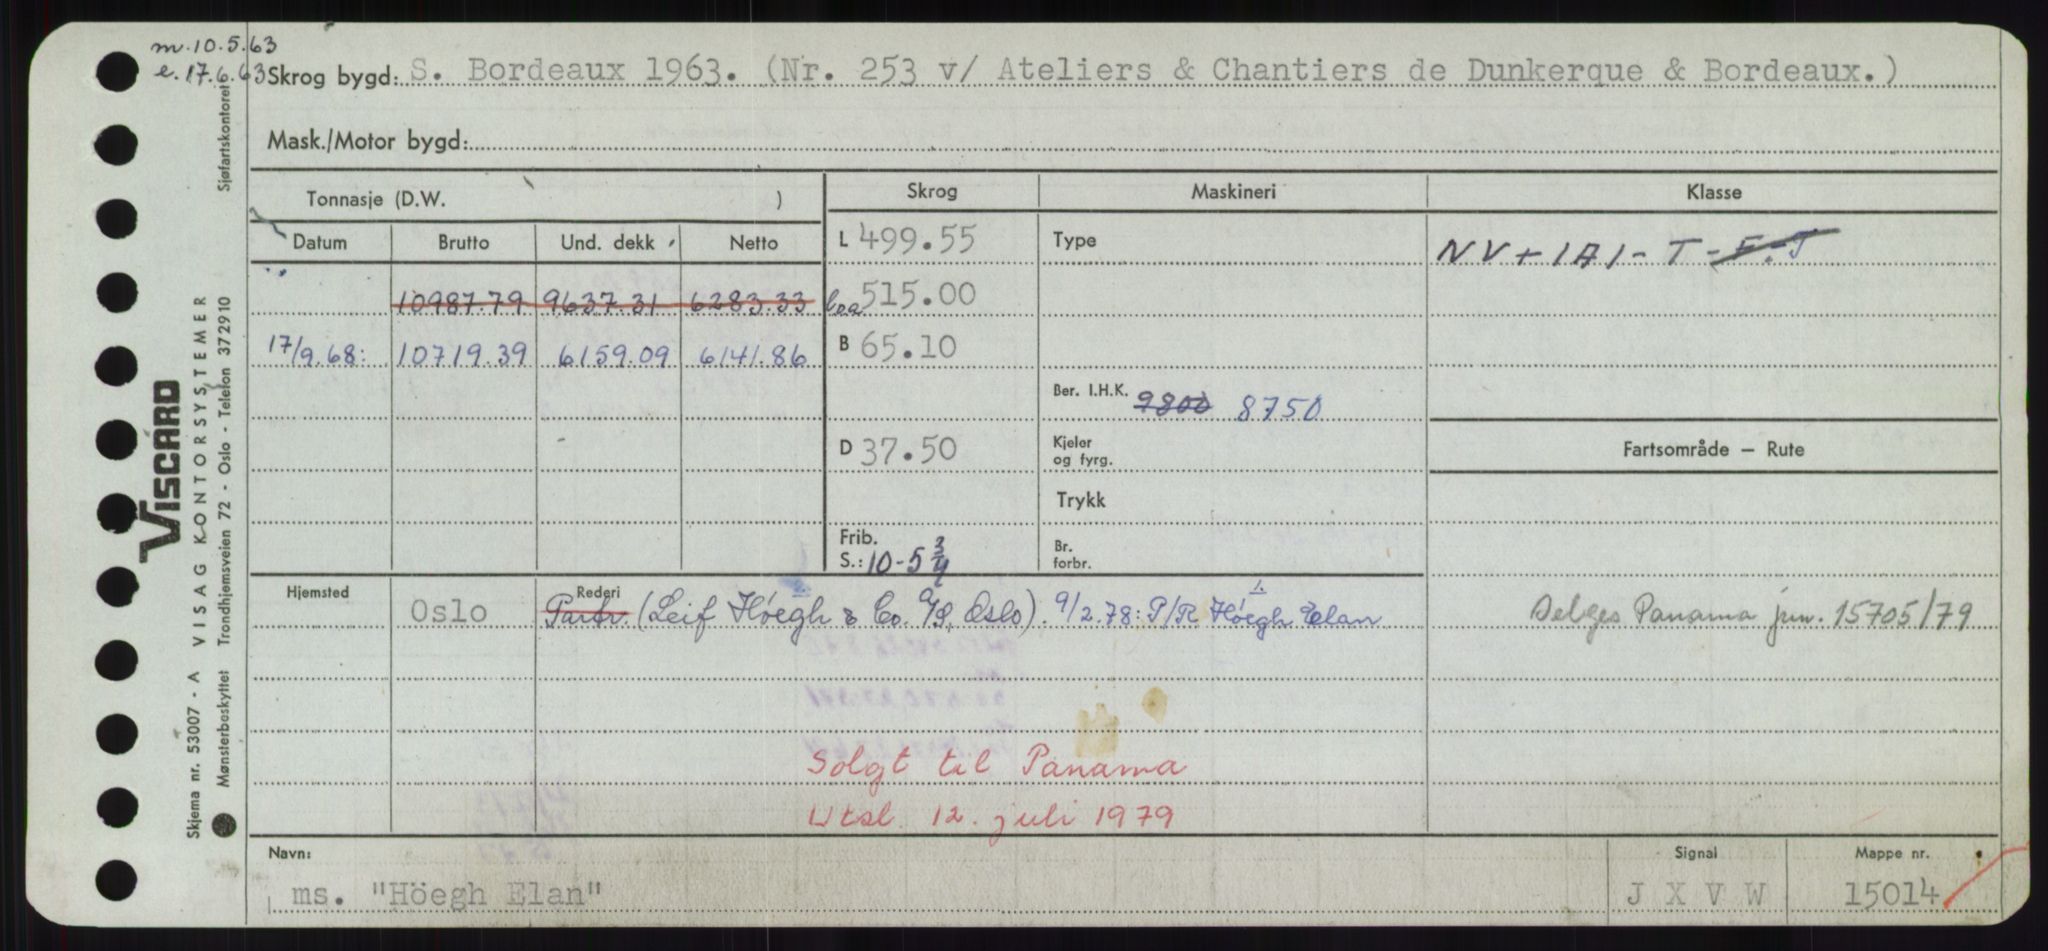 m. 10.5.63
e. 17.6.63
Skrog bygd: S. Bordeaux 1963. (Nr. 253 v/ Ateliers & Chantiers de Dunkerque & Bordeaux.)
Mask./Motor bygd:
Tonnasje (D.W. ) Skrog Maskineri Klasse
Datum Brutto Und. dekk Netto L 499.55 Type NV+1A1-T-F-J
10987.79 9637.31 6283.33 loa 515.00
17/9.68: 10719.39 6159.09 6141.86 B 65.10
Ber. I.H.K. 9800 8750
D 37.50 Kjeler og fyrg. Fartsområde – Rute
Trykk
Frib. S.: 10-5 3/4 Br. forbr.
Hjemsted Oslo Rederi Partr. (Leif Höegh & Co. A/S, Oslo). 9/2.78: P/R Höegh Elan Selges Panama jnr. 15705/79
Solgt til Panama
Utsl. 12. juli 1979
Navn: Signal Mappe nr.
ms. "Höegh Elan" J X V W 15014
VISCARD
Skjema nr. 53007 - A VISAG KONTORSYSTEMER
Mønsterbeskyttet Trondhjemsveien 72 - Oslo - Telefon 372910 Sjøfartskontoret